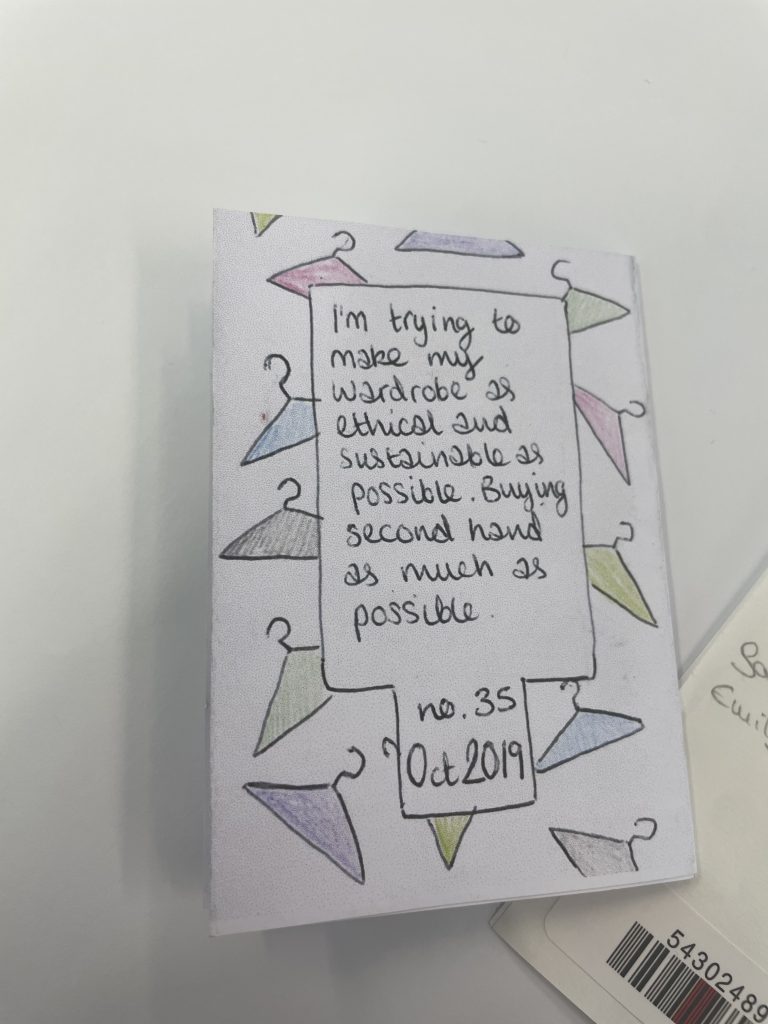 I'm trying to
make my
wardrobe as
ethical and
sustainable as
possible. Buying
second hand
as much as
possible.
no. 35
Oct 2019
54302489